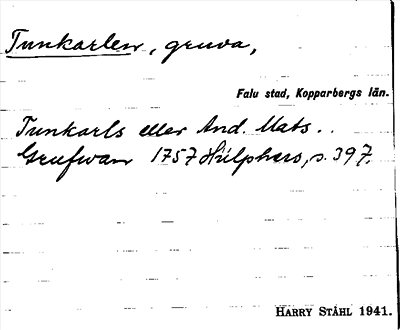 Tunkarlen, gruva,
Falu stad, Kopparbergs län.
Tunkarls eller And. Mats..
Grufwan 1757 Hülphers, s. 397.
HARRY STÅHL 1941.